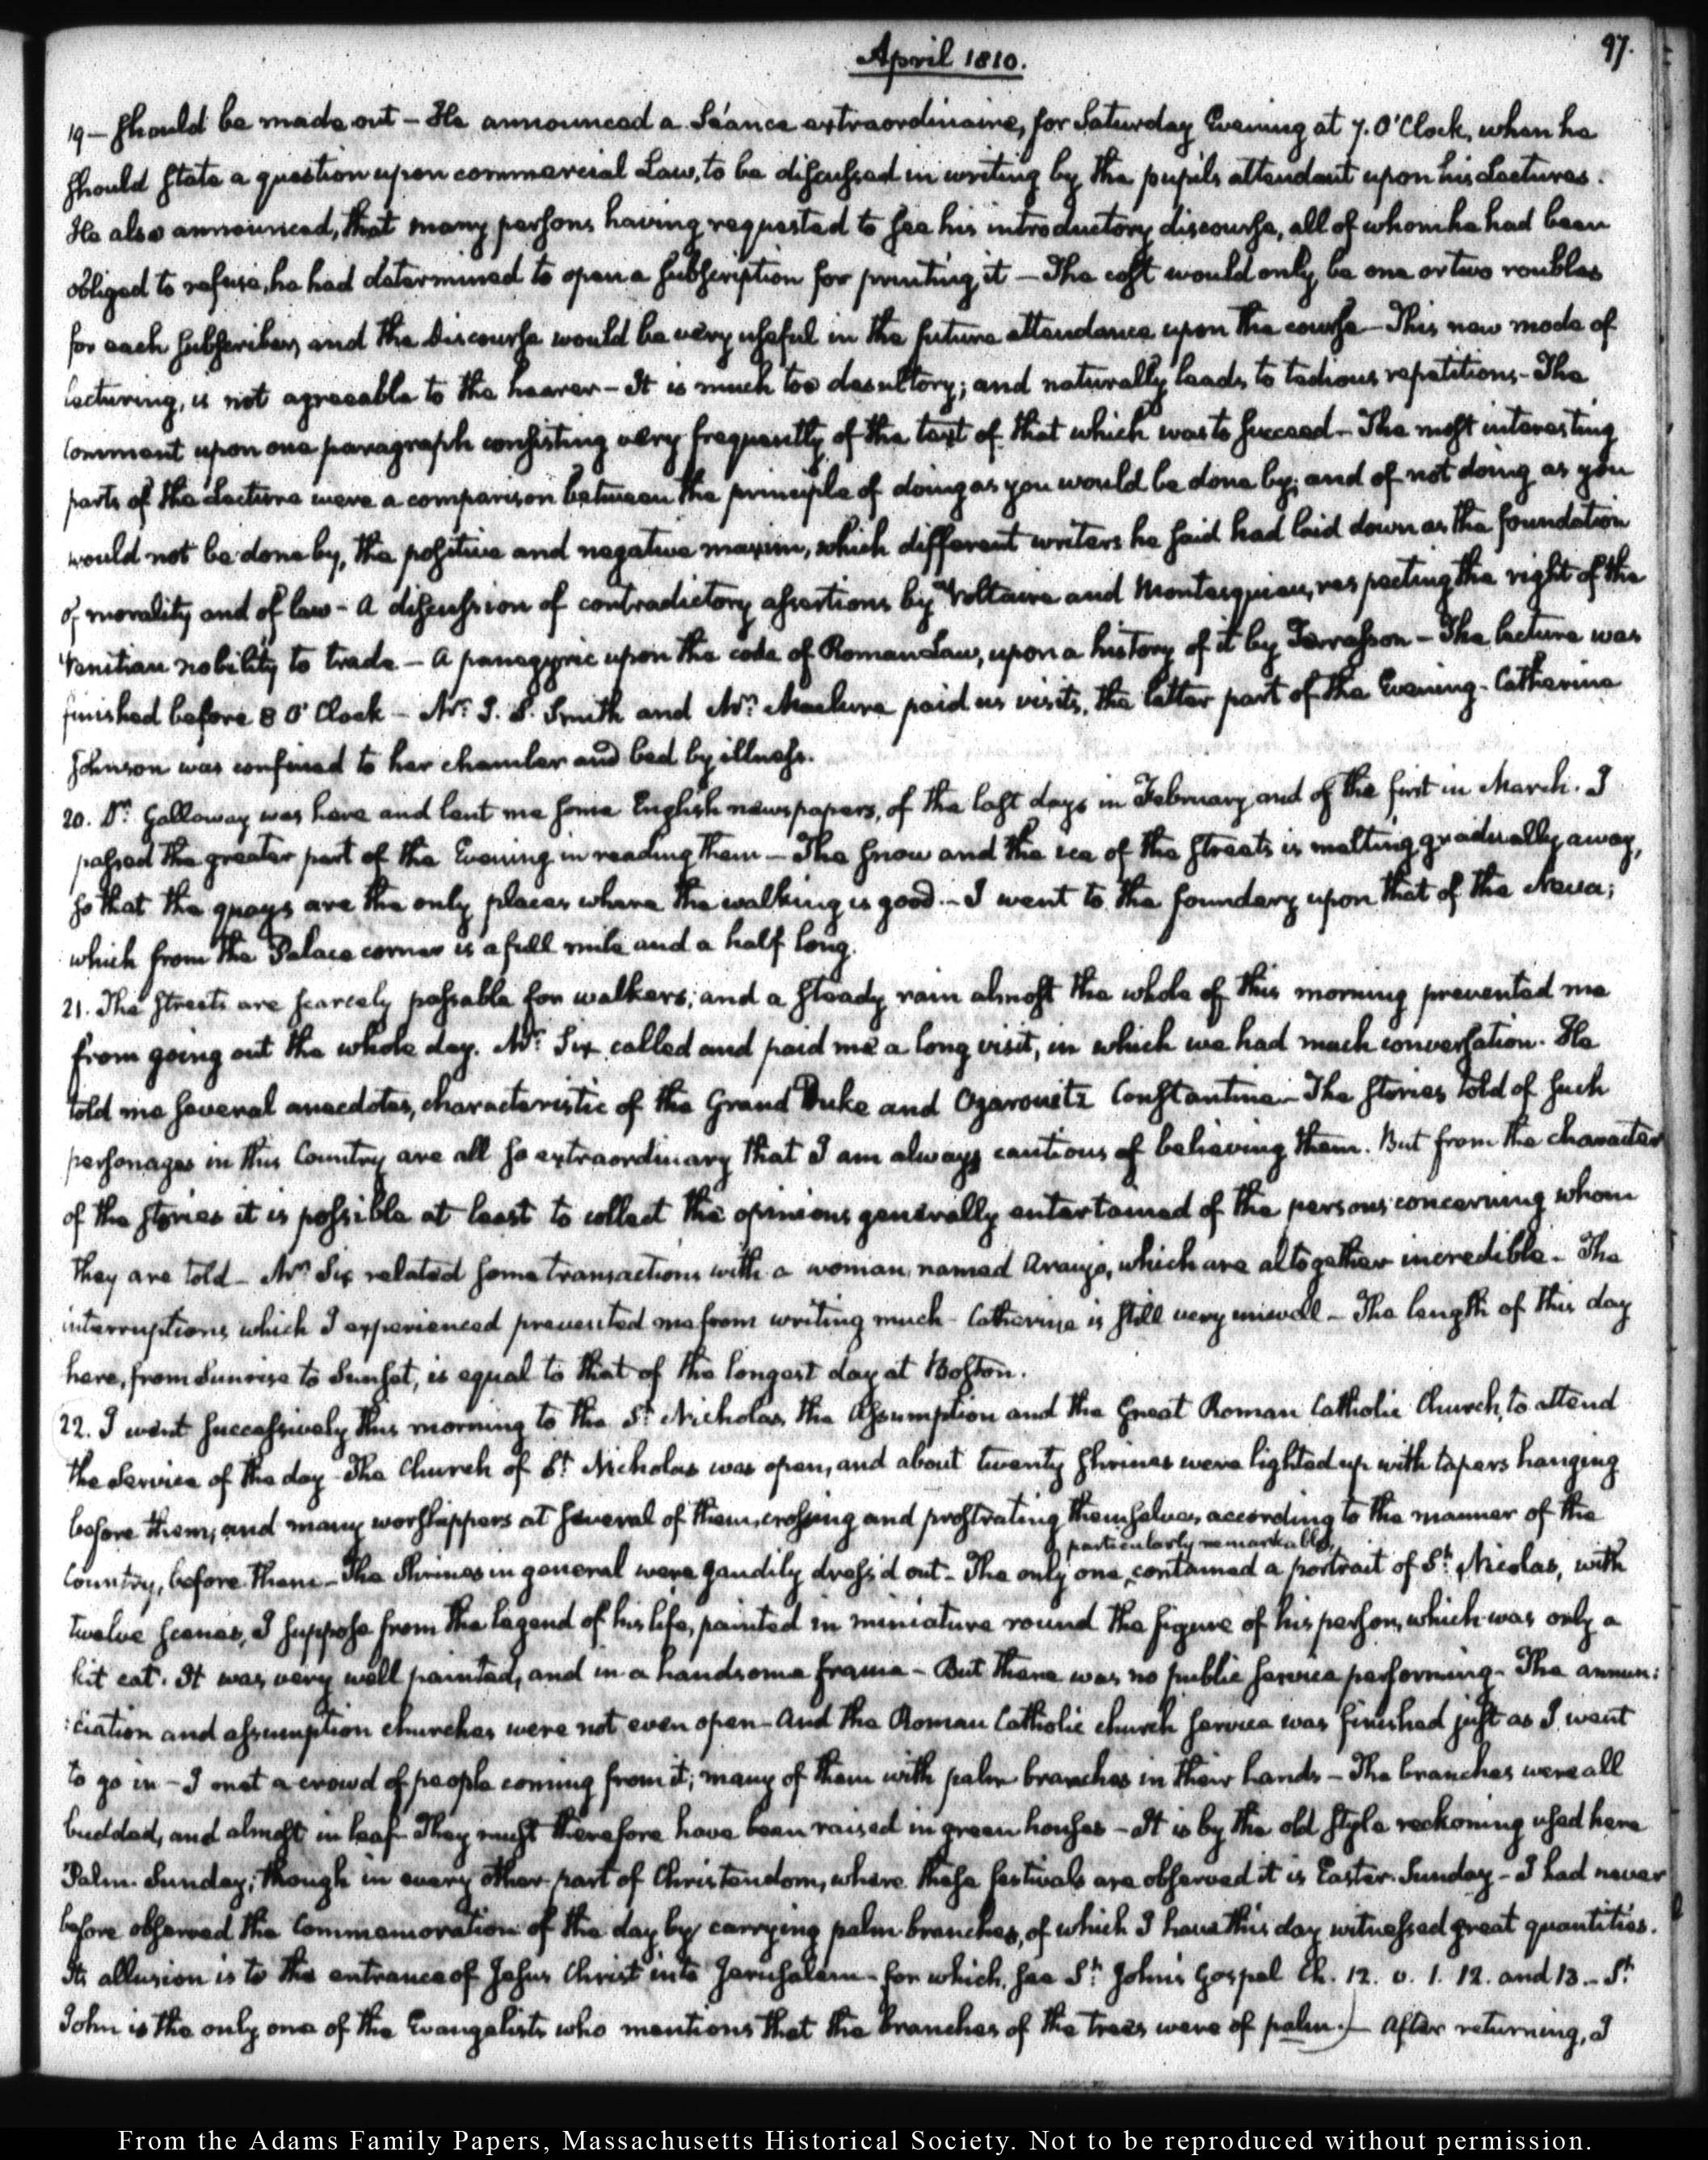 April 1810.
97.
19 — should be made out — He announced a Séance extraordinaire, for Saturday Evening at 7. O'Clock, when he
should state a question upon commercial Law, to be discussed in writing by the pupils attendant upon his Lectures.
He also announced, that many persons having requested to see his introductory discourse, all of whom he had been
obliged to refuse, he had determined to open a subscription for printing it — The cost would only be one or two roubles
for each subscriber, and the Discourse would be very useful in the future attendance upon the course — This new mode of
lecturing, is not agreeable to the hearer — It is much too desultory; and naturally leads to tedious repetitions — The
comment upon one paragraph consisting very frequently of the text of that which was to succeed — The most interesting
parts of the Lecture were a comparison between the principle of doing as you would be done by; and of not doing as you
would not be done by, the positive and negative maxim, which different writers he said had laid down as the foundation
of morality and of law — A discussion of contradictory assertions by Voltaire and Montesquieu, respecting the right of the
Venitian nobility to trade — A panegyric upon the code of Roman Law, upon a history of it by Terrasson — The lecture was
finished before 8 O'Clock — Mr. J. S. Smith and Mr. Maclure paid us visits, the latter part of the Evening — Catherine
Johnson was confined to her chamber and bed by illness.
20. Dr. Galloway was here and lent me some English newspapers, of the last days in February and of the first in March. I
passed the greater part of the Evening in reading them — The snow and the ice of the streets is melting gradually away,
so that the quays are the only places where the walking is good — I went to the foundery upon that of the Neva;
which from the Palace corner is a full mile and a half long.
21. The streets are scarcely passable for walkers; and a steady rain almost the whole of this morning prevented me
from going out the whole day. Mr. Six called and paid me a long visit, in which we had much conversation. He
told me several anecdotes, characteristic of the Grand Duke and Czarowitz Constantine — The stories told of such
personages in this Country are all so extraordinary that I am always cautious of believing them. But from the character
of the stories it is possible at least to collect the opinions generally entertained of the persons concerning whom
they are told — Mr. Six related some transactions with a woman named Araujo, which are altogether incredible — The
interruptions which I experienced prevented me from writing much — Catherine is still very unwell — The length of this day
here, from Sunrise to Sunset, is equal to that of the longest day at Boston.
22. I went successively this morning to the St. Nicholas, the Assumption and the Great Roman Catholic Church, to attend
the Service of the day — The Church of St. Nicholas was open, and about twenty shrines were lighted up with tapers hanging
before them; and many worshippers at several of them, crossing and prostrating themselves, according to the manner of the
particularly remarkable,
Country, before them — The Shrines in general were gaudily dress'd out — The only one contained a portrait of St. Nicolas, with
twelve scenes, I suppose from the legend of his life, painted in miniature round the figure of his person, which was only a
kit cat. It was very well painted, and in a handsome frame — But there was no public service performing — The annun:
:ciation and assumption churches were not even open — And the Roman Catholic church service was finished just as I went
to go in — I met a crowd of people coming from it; many of them with palm branches in their hands — The branches were all
budded, and almost in leaf — They must therefore have been raised in green houses — It is by the old style reckoning used here
Palm Sunday; though in every other part of Christendom, where these festivals are observed it is Easter Sunday — I had never
before observed the Commemoration of the day by carrying palm branches, of which I have this day witnessed great quantities.
Its allusion is to the entrance of Jesus Christ into Jerusalem — for which, see St. John's Gospel Ch. 12. v. 1. 12. and 13. — St.
John is the only one of the Evangelists who mentions that the branches of the trees were of palm.) — After returning, I
From the Adams Family Papers, Massachusetts Historical Society. Not to be reproduced without permission.